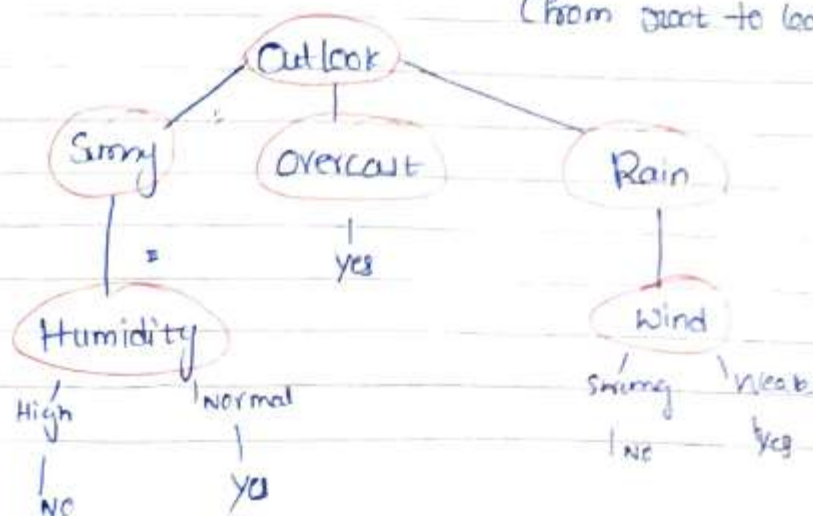 (from root to
Outlook
Sunny Overcast Rain
yes
Humidity Wind
High Normal Strong Weak
No Yes No Yes